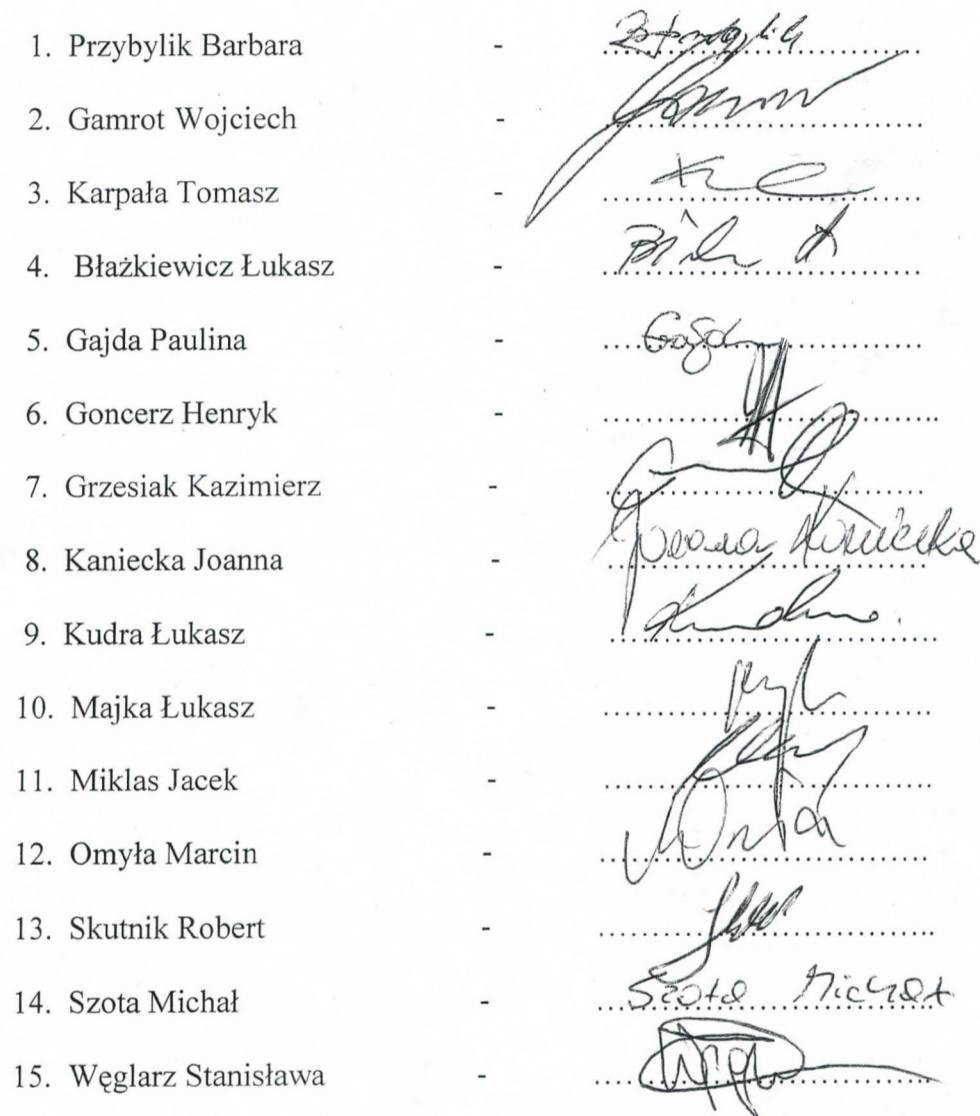 1. Przybylik Barbara -
2. Gamrot Wojciech -
3. Karpała Tomasz -
4. Błażkiewicz Łukasz -
5. Gajda Paulina - Gajda
6. Goncerz Henryk -
7. Grzesiak Kazimierz -
8. Kaniecka Joanna - Joanna Kaniecka
9. Kudra Łukasz -
10. Majka Łukasz -
11. Miklas Jacek -
12. Omyła Marcin -
13. Skutnik Robert -
14. Szota Michał - Szota Michał
15. Węglarz Stanisława -